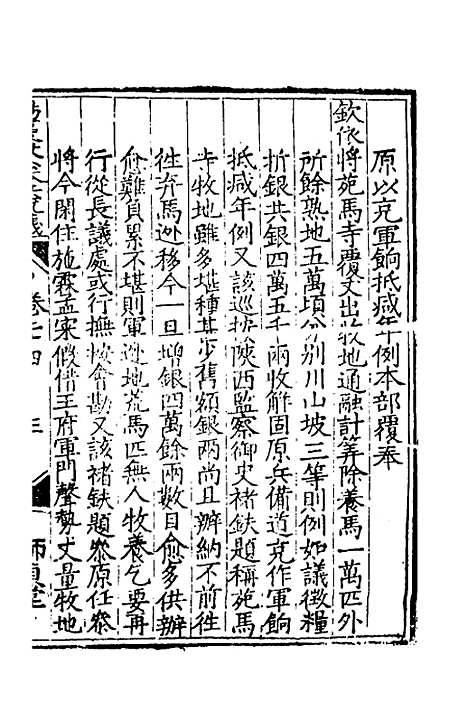 原以充軍餉抵減年例本部覆奉
欽依將苑馬寺覆丈出牧地通融計算除養馬一萬匹外
所餘熟地五萬頃分別川山坡三等則例如議徵糧
折銀共銀四萬五千兩收解固原兵備道充作軍餉
抵減年例又該巡按陝西監察御史褚鈇題稱苑馬
寺牧地雖多堪種甚少舊額銀兩尚且辦納不前往
往弃馬逃移今一旦增銀四萬餘兩數目愈多供辦
愈難負累不堪則軍逃地荒馬匹無人牧養乞要再
行從長議處或行撫按會勘又該褚鈇題叅原任叅
將今閑住施霖孟宋假借王府軍門聲勢丈量牧地
卷七四
三
師貞堂